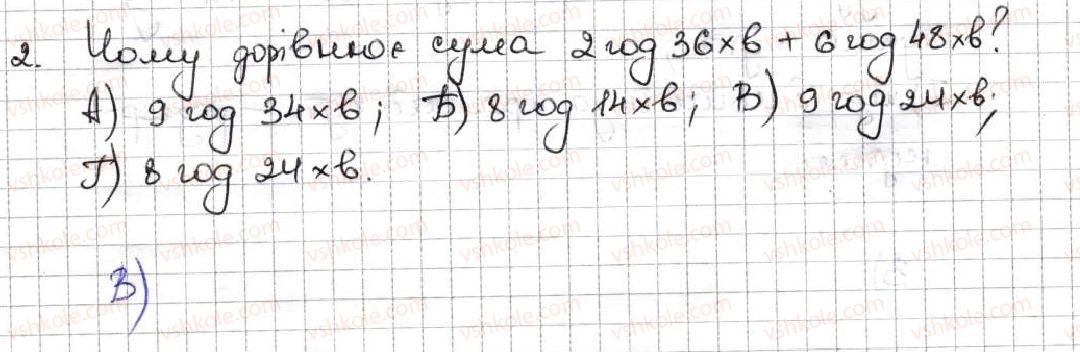 2. Чому дорівнює сума 2 год 36 хв + 6 год 48 хв?
А) 9 год 34 хв; Б) 8 год 14 хв; В) 9 год 24 хв;
Г) 8 год 24 хв.
В)